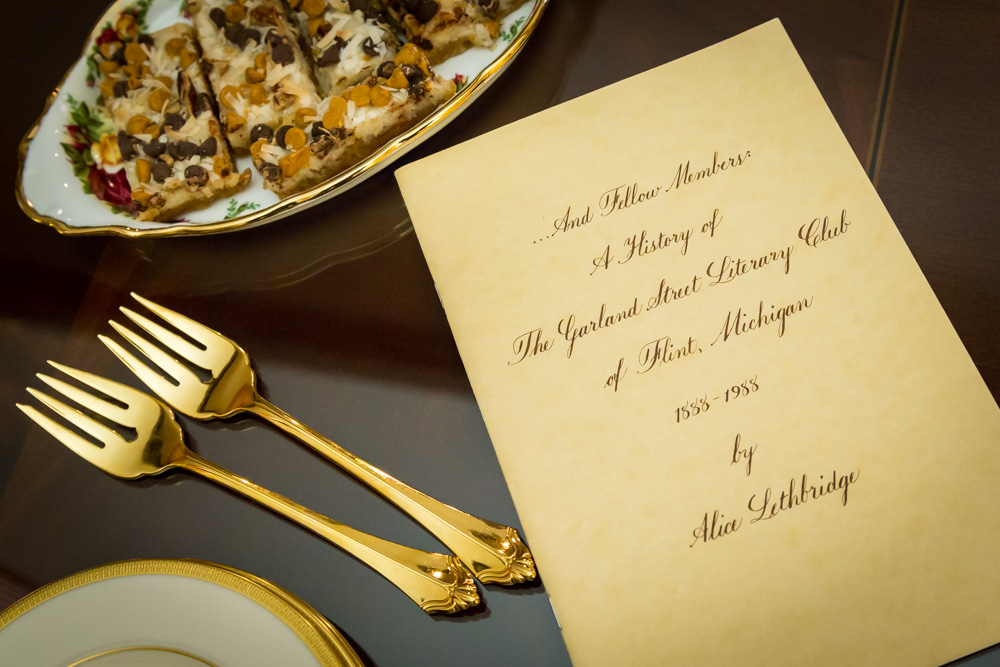 ...And Fellow Members:
A History of
The Garland Street Literary Club
of Flint, Michigan
1888-1988
by
Alice Lethbridge